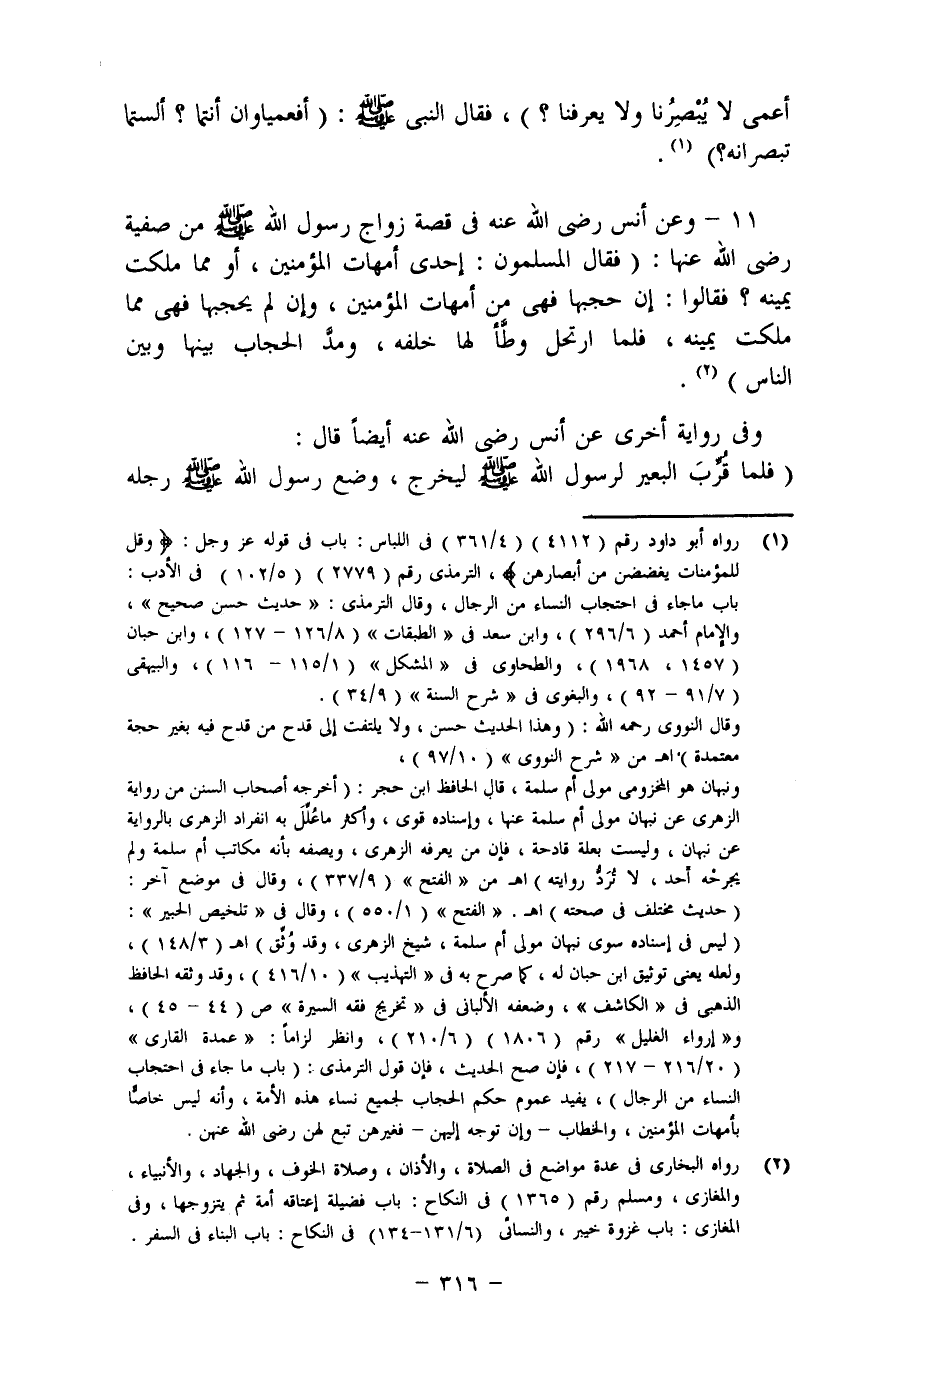 أعمى لا يُبْصِرُنا ولا يعرفنا ؟ ) ، فقال النبى ﷺ : ( أفعمياوان أنتما ؟ ألستما
تبصرانه؟) (١) .
١١ – وعن أنس رضى الله عنه فى قصة زواج رسول الله ﷺ من صفية
رضى الله عنها : ( فقال المسلمون : إحدى أمهات المؤمنين ، أو مما ملكت
يمينه ؟ فقالوا : إن حجبها فهى من أمهات المؤمنين ، وإن لم يحجبها فهى مما
ملكت يمينه ، فلما ارتحل وطَّأ لها خلفه ، ومدَّ الحجاب بينها وبين
الناس ) (٢) .
وفى رواية أخرى عن أنس رضى الله عنه أيضاً قال :
( فلما قُرِّبَ البعير لرسول الله ﷺ ليخرج ، وضع رسول الله ﷺ رجله
(١) رواه أبو داود رقم ( ٤١١٢ ) ( ٣٦١/٤ ) فى اللباس : باب فى قوله عز وجل : ﴿ وقل
للمؤمنات يغضضن من أبصارهن ﴾ ، الترمذى رقم ( ٢٧٧٩ ) ( ١٠٢/٥ ) فى الأدب :
باب ماجاء فى احتجاب النساء من الرجال ، وقال الترمذى : « حديث حسن صحيح » ،
والإمام أحمد ( ٢٩٦/٦ ) ، وابن سعد فى « الطبقات » ( ١٢٦/٨ – ١٢٧ ) ، وابن حبان
( ١٤٥٧ ، ١٩٦٨ ) ، والطحاوى فى « المشكل » ( ١١٥/١ – ١١٦ ) ، والبيهقى
( ٩١/٧ – ٩٢ ) ، والبغوى فى « شرح السنة » ( ٣٤/٩ ) .
وقال النووى رحمه الله : ( وهذا الحديث حسن ، ولا يلتفت إلى قدح من قدح فيه بغير حجة
معتمدة ) اهـ من « شرح النووى » ( ٩٧/١٠ ) ،
ونبهان هو المخزومى مولى أم سلمة ، قال الحافظ ابن حجر : ( أخرجه أصحاب السنن من رواية
الزهرى عن نبهان مولى أم سلمة عنها ، وإسناده قوى ، وأكثر ماعُلِّلَ به انفراد الزهرى بالرواية
عن نبهان ، وليست بعلة قادحة ، فإن من يعرفه الزهرى ، ويصفه بأنه مكاتب أم سلمة ولم
يجرحْه أحد ، لا تُرَدُّ روايته ) اهـ من « الفتح » ( ٣٣٧/٩ ) ، وقال فى موضع آخر :
( حديث مختلف فى صحته ) اهـ . « الفتح » ( ٥٥٠/١ ) ، وقال فى « تلخيص الحبير » :
( ليس فى إسناده سوى نبهان مولى أم سلمة ، شيخ الزهرى ، وقد وُثِّق ) اهـ ( ١٤٨/٣ ) ،
ولعله يعنى توثيق ابن حبان له ، كما صرح به فى « التهذيب » ( ٤١٦/١٠ ) ، وقد وثقه الحافظ
الذهبى فى « الكاشف » ، وضعفه الألبانى فى « تخريج فقه السيرة » ص ( ٤٤ – ٤٥ ) ،
و« إرواء الغليل » رقم ( ١٨٠٦ ) ( ٢١٠/٦ ) ، وانظر لزاماً : « عمدة القارى »
( ٢١٦/٢٠ – ٢١٧ ) ، فإن صح الحديث ، فإن قول الترمذى : ( باب ما جاء فى احتجاب
النساء من الرجال ) ، يفيد عموم حكم الحجاب لجميع نساء هذه الأمة ، وأنه ليس خاصًّا
بأمهات المؤمنين ، والخطاب – وإن توجه إليهن – فغيرهن تبع لهن رضى الله عنهن .
(٢) رواه البخارى فى عدة مواضع فى الصلاة ، والأذان ، وصلاة الخوف ، والجهاد ، والأنبياء ،
والمغازى ، ومسلم رقم ( ١٣٦٥ ) فى النكاح : باب فضيلة إعتاقه أمة ثم يتزوجها ، وفى
المغازى : باب غزوة خيبر ، والنسائى (١٣١/٦–١٣٤) فى النكاح : باب البناء فى السفر .
– ٣١٦ –